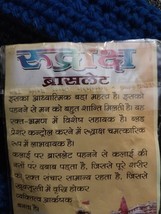 रुद्राक्ष
ब्रासलेट
इसका आध्यात्मिक बड़ा महत्व है। इसको
पहनने से मन को बहुत शान्ति मिलती है। यह
रक्त-भ्रमण में विशेष सहायक है। ब्लड
प्रेशर कन्ट्रोल करने में रुद्राक्ष चमत्कारिक
रूप में लाभदायक है।
कलाई पर ब्रासलेट पहनने से कलाई की
नसों पर दबाव पड़ता है, जिससे पूरे शरीर
का रक्त संचार सामान्य रहता है, जिससे
में वृद्धि होकर
व्यक्तित्व आकर्षक
बनता है।